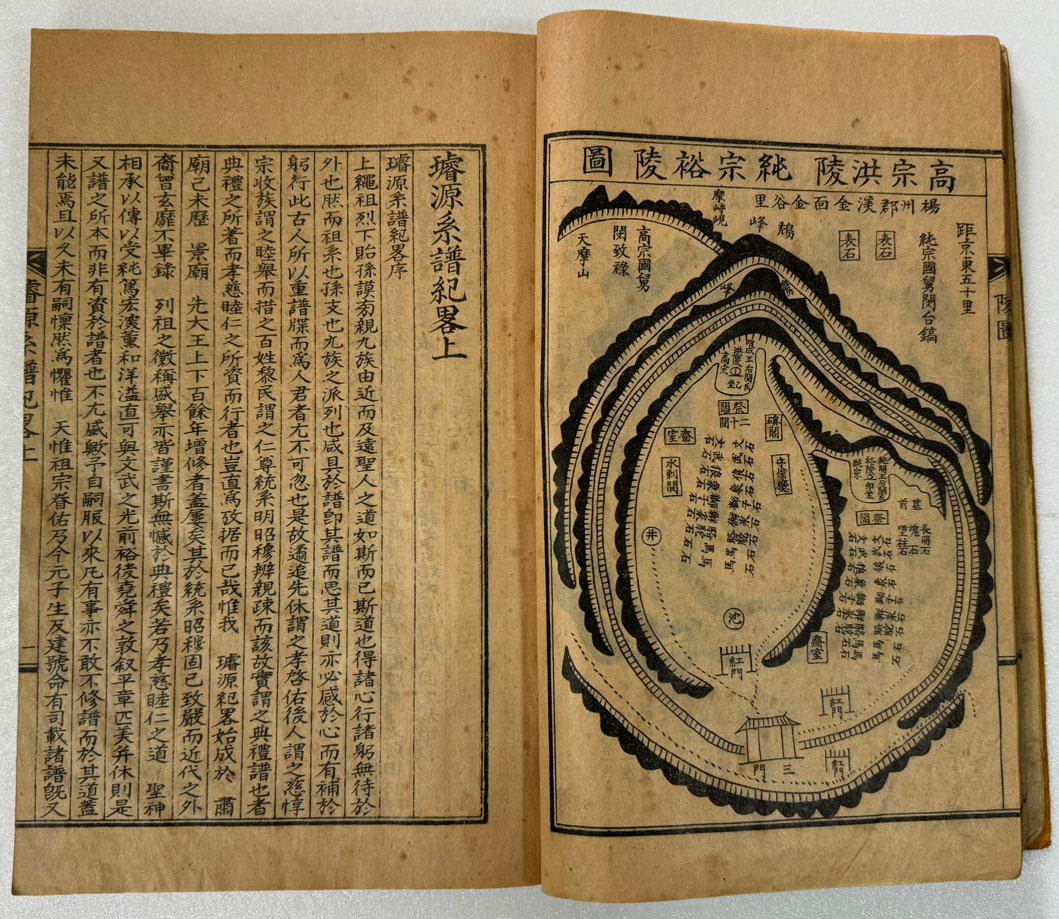 高宗洪陵 純宗裕陵圖
楊州郡渼金面金谷里
距京東五十里
純宗國舅閔台鎬
表石
表石
鵄峰
摩峙峴
高宗國舅
閔致祿
天摩山
碑閣
守僕廳
祭閣
齋室
水剌間
井
紅門
齋室
紅門
三門
陵圖
璿源系譜紀畧上
璿源系譜紀畧序
上繩祖烈下貽孫謨旁親九族由近而及遠聖人之道如斯而已斯道也得諸心行諸躬無待於
外也然而祖系也孫支也九族之派列也咸具於譜卽其譜而思其道則亦必感於心而有補於
躬行此古人所以重譜牒而爲人君者尤不可忽也是故遹追先休謂之孝啓佑後人謂之慈惇
宗收族謂之睦舉而措之百姓黎民謂之仁尊統系明昭穆辨親疎而該故實謂之典禮譜也者
典禮之所著而孝慈睦仁之所資而行者也豈直爲攷据而已哉惟我 璿源紀畧始成於 肅
廟己未歷 景廟 先大王上下百餘年增修者葢屢矣其於統系昭穆固已致嚴而近代之外
裔曾玄靡不畢錄 列祖之徽稱盛舉亦皆謹書斯無憾於典禮矣若乃孝慈睦仁之道 聖神
相承以傳以受純篤宏濩薰和洋溢直可與文武之光前裕後堯舜之敦叙平章匹美弁休則是
又譜之所本而非有資於譜者也不尤盛歟予自嗣服以來凡有事亦不敢不修譜而於其道葢
未能焉且以久未有嗣懍然爲懼惟 天惟祖宗眷佑乃今元子生及建號命有司載諸譜旣又
璿源系譜紀畧上